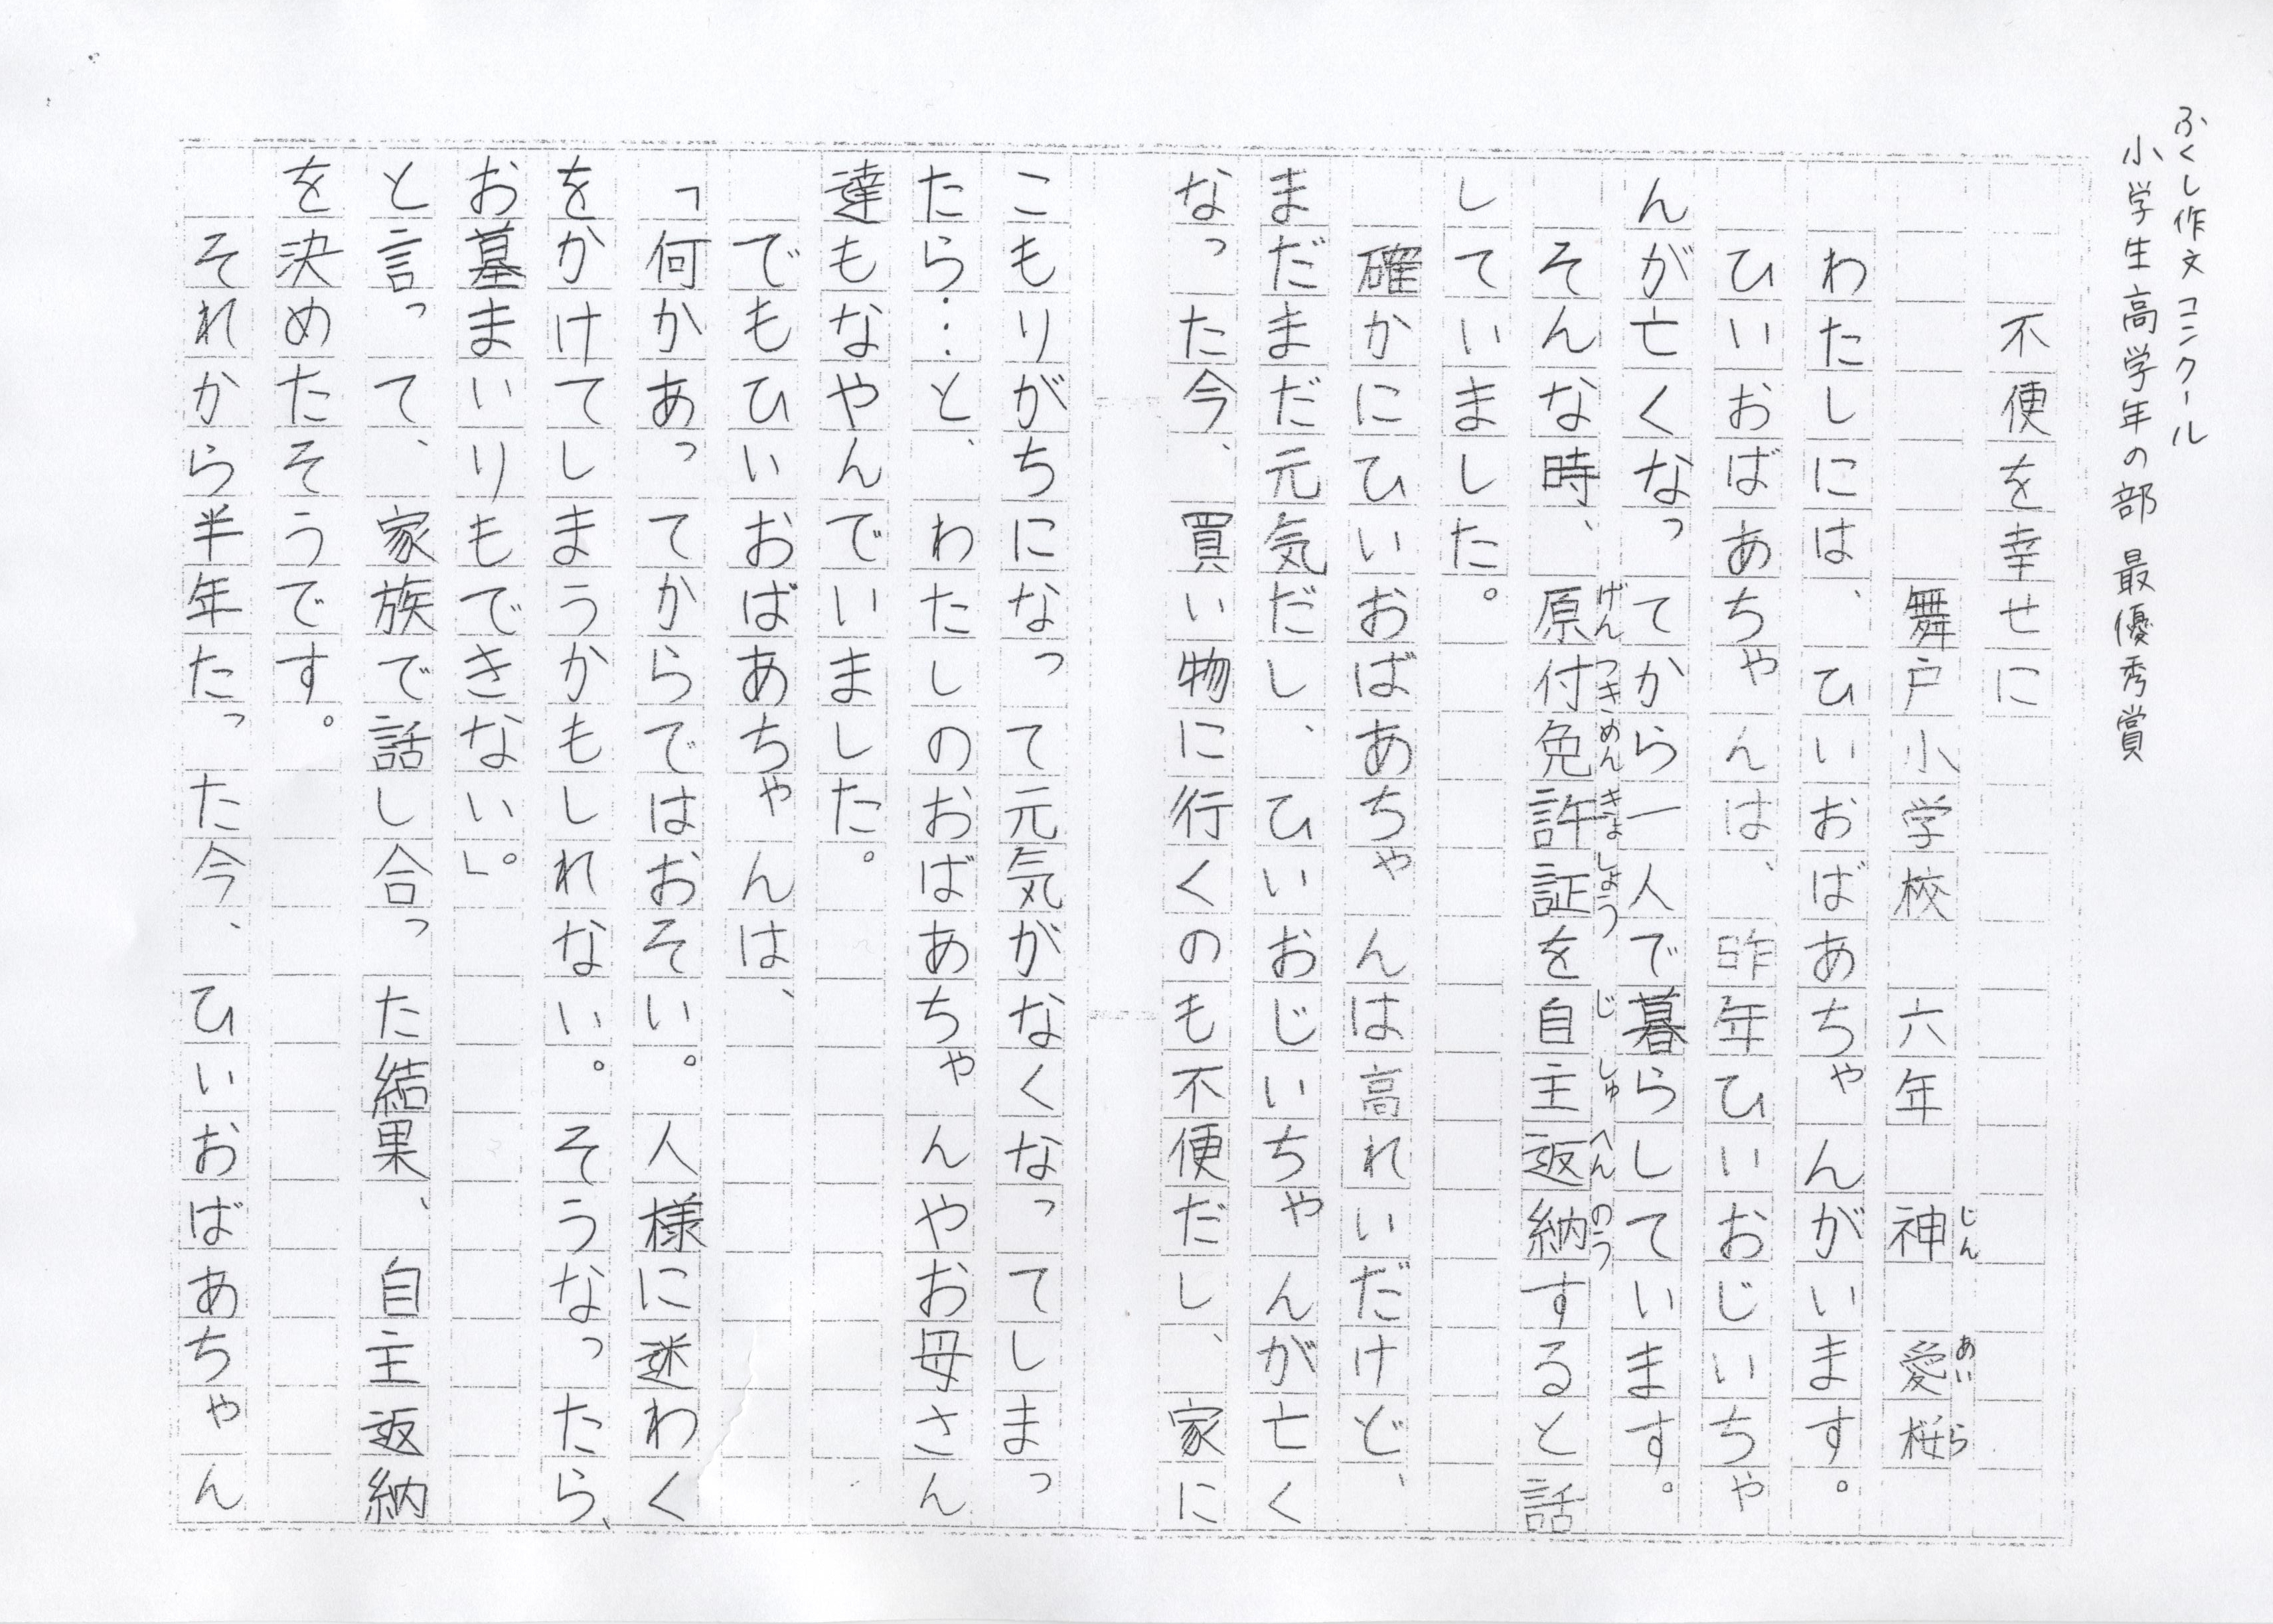 ふくし作文コンクール
小学生高学年の部 最優秀賞
不便を幸せに
舞戸小学校 六年 神 愛桜
じん あい ら
わたしには、ひいおばあちゃんがいます。
ひいおばあちゃんは、昨年ひいおじいちゃ
んが亡くなってから一人で暮らしています。
そんな時、原付免許証を自主返納すると話
げんつきめんきょしょう じしゅへんのう
していました。
確かにひいおばあちゃんは高れいだけど、
まだまだ元気だし、ひいおじいちゃんが亡く
なった今、買い物に行くのも不便だし、家に
こもりがちになって元気がなくなってしまっ
たら…と、わたしのおばあちゃんやお母さん
達もなやんでいました。
でもひいおばあちゃんは、
「何かあってからではおそい。人様に迷わく
をかけてしまうかもしれない。そうなったら、
お墓まいりもできない。」
と言って、家族で話し合った結果、自主返納
を決めたそうです。
それから半年たった今、ひいおばあちゃん